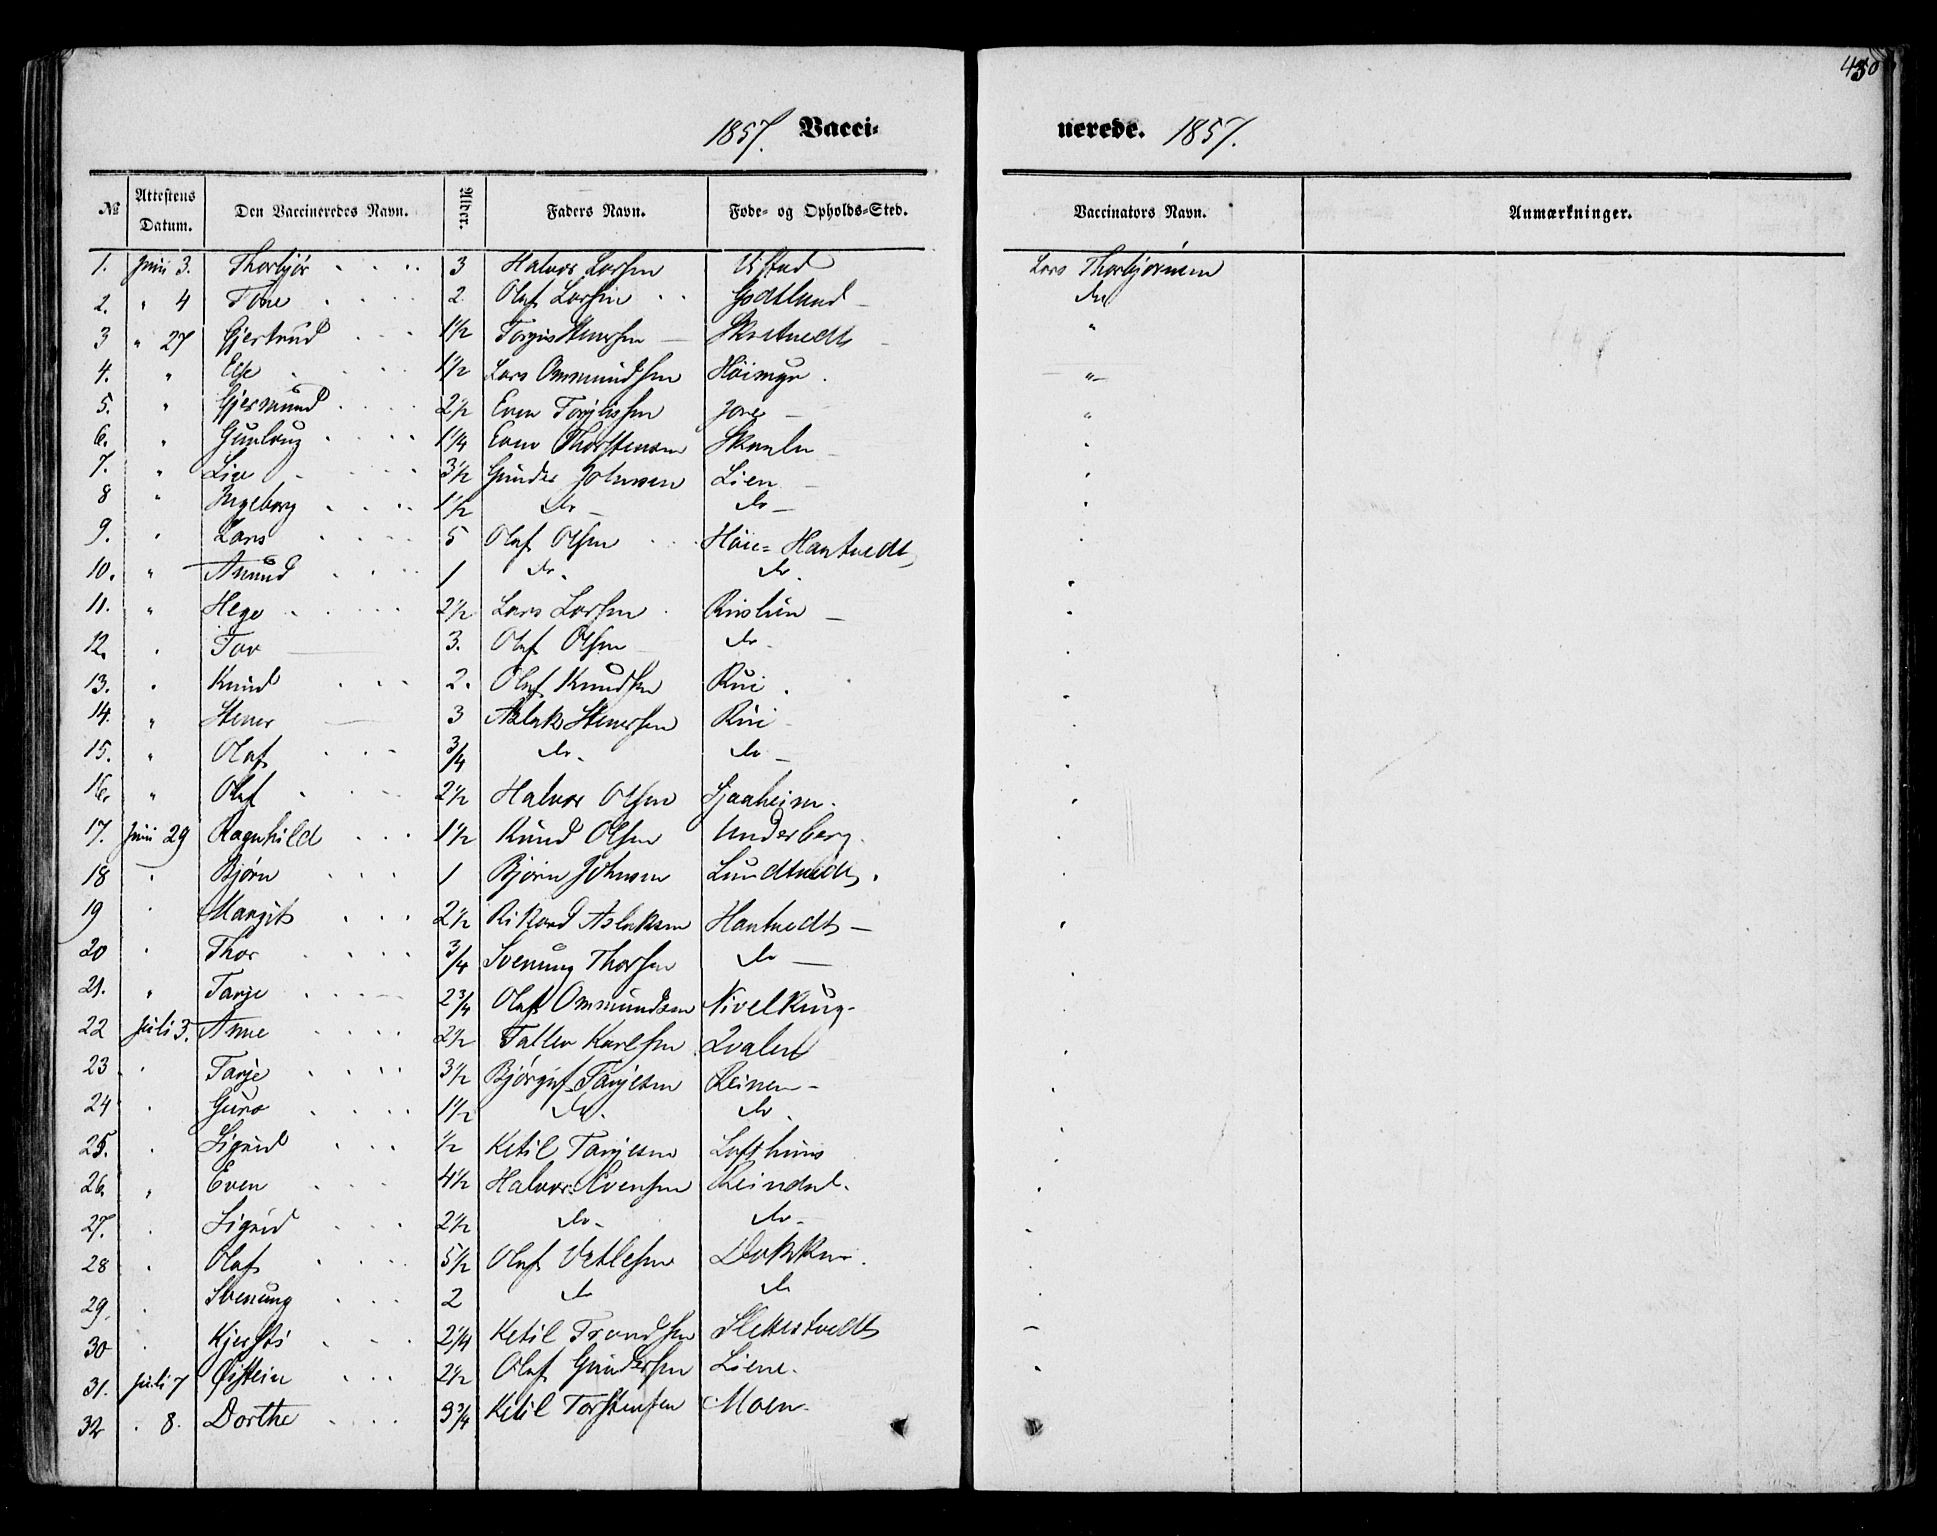 450
1857. Vacci- nerede. 1857.
№ Attestens Datum. Den Vaccineredes Navn. Alder. Faders Navn. Føde- og Opholds-Sted. Vaccinators Navn. Anmærkninger.
1. Juni 3. Thorbjør 3 Halvor Larsen Ustad Lars Thorbjørnsen
2. " 4 Tone 2 Olaf Larsen Godtland do
3 " 27 Gjertrud 1½ Torgus Stenersen Skretvedt "
4. " Else 1½ Lars Ommundsen Høimyr "
5. " Gjermund 2½ Even Torgilssen Jore "
6. " Gunlaug 1¼ Even Thorstensen "
7. " Live 3½ Gunder Johnsen Lien "
8 " Ingeborg 1½ do do "
9. " Lars 5 Olaf Olsen Høie= Hantvedt "
10. " Amund 1 do. do. "
11. " Hege 2½ Lars Larsen "
12. " Tov 3. Olaf Olsen do. "
13. " Knud 2. Olaf Knudsen Rui "
14. " Stener 3 Aslak Stenersen Rui "
15. " Olaf ¾ do. do "
16. " Olaf 2½ Halvor Olsen Sjaaheim "
17. Juni 29 Ragnhild 1½ Knud Olsen Underberg "
18 " Bjørn 1 Bjørn Johnsen Lundtvedt "
19 " Margit 2½ Rikard Aslaksen Hantvedt "
20 " Thor ¾ Svenung Thorsen do "
21. " Tarje 2¾ Olaf Ommundsen Nivelkùg "
22 Juli 3. Anne 2½ Tallev Karlsen Qvalen "
23 " Tarje 3½ Bjørguf Tarjesen Reinen "
24 " Guro 1½ do. do. "
25. " Sigrid ½ Ketil Tarjesen Lofthuus "
26. " Even 4½ Halvor Evensen Reindal. "
27. " Sigrid 2½ do. do. "
28 " Olaf 5½ Olaf Vetlesen Dokka "
29. " Svenung 2 do do "
30 " Kjersti 2¼ Ketil Trondsen Slettetvedt "
31. Juli 7 Østein 2½ Olaf Gundersen Liene. "
32 " 8. Dorthe 3¾ Ketil Torstensen Moen.